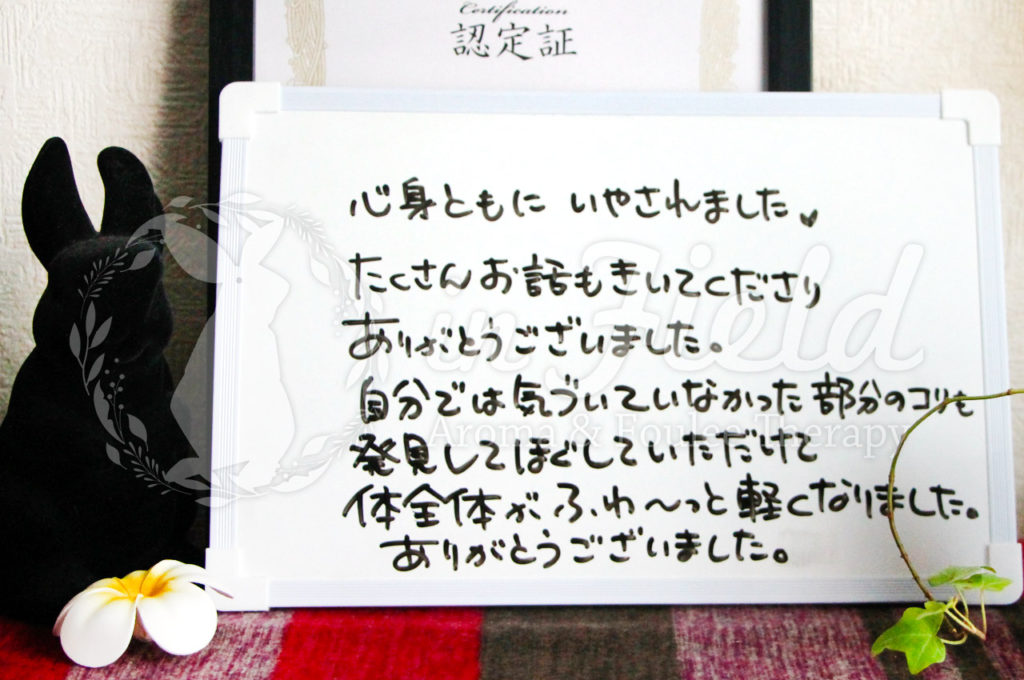 Certification
認定証
心身ともに いやされました♥
たくさんお話もきいてくださり
ありがとうございました。
自分では気づいていなかった部分のコリも
発見してほぐしていただけて
体全体がふわ〜っと軽くなりました。
ありがとうございました。
in Field
Aroma & Foulee Therapy